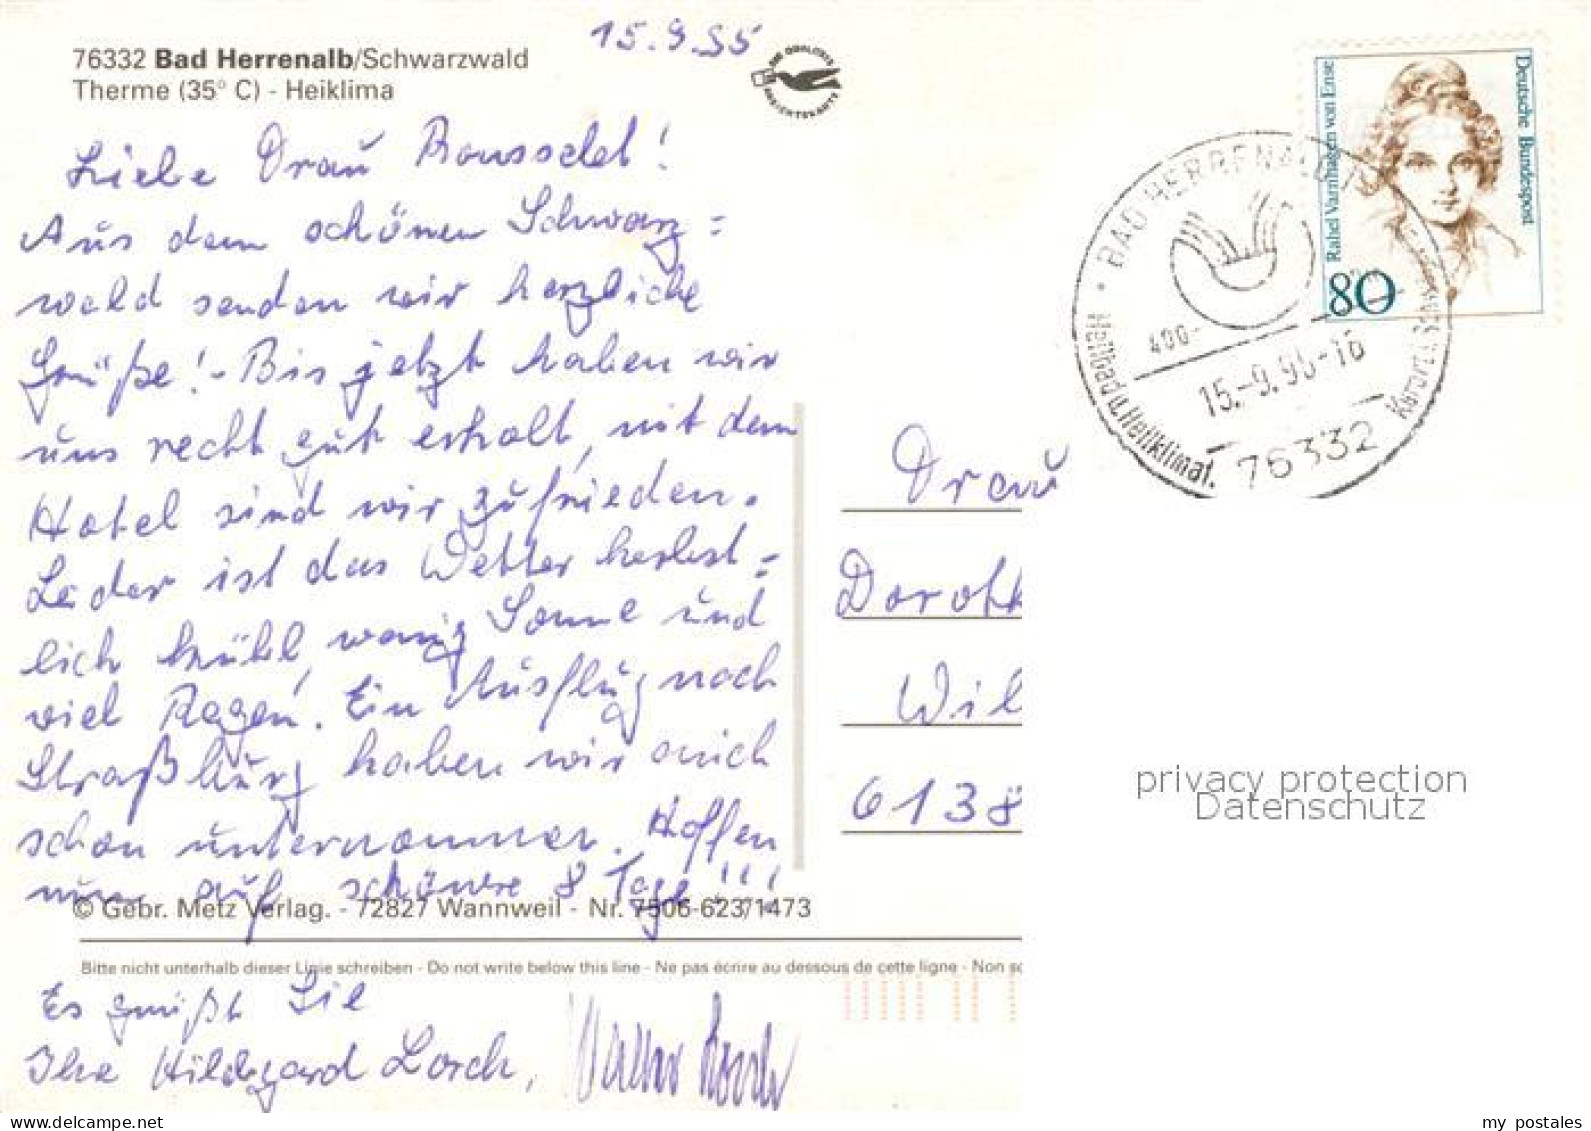 15.9.95
76332 Bad Herrenalb/Schwarzwald
Therme (35° C) - Heiklima
Liebe Frau Rousselet!
Aus dem schönen Schwarz=
wald senden wir herzliche
Grüße! - Bis jetzt haben wir
uns recht gut erholt, mit dem
Hotel sind wir zufrieden.
Leider ist das Wetter herbst=
lich kühl, wenig Sonne und
viel Regen. Ein Ausflug nach
Straßburg haben wir auch
schon unternommen. Hoffen
nun auf schönere 8 Tage!!!
© Gebr. Metz Verlag. - 72827 Wannweil - Nr. 7506-623/1473
Bitte nicht unterhalb dieser Linie schreiben - Do not write below this line - Ne pas écrire au dessous de cette ligne - Non sc
Es grüßt Sie
Ihre Hildegard Lorch,
Deutsche Bundespost
Rahel Varnhagen von Ense
80
BAD HERRENALB
400-
15.-9.95-16
76332
Heilbad u. Heilklimat. Kurort
Frau
Doroth
Wil
6138
privacy protection
Datenschutz
delcampe.net
my_postales